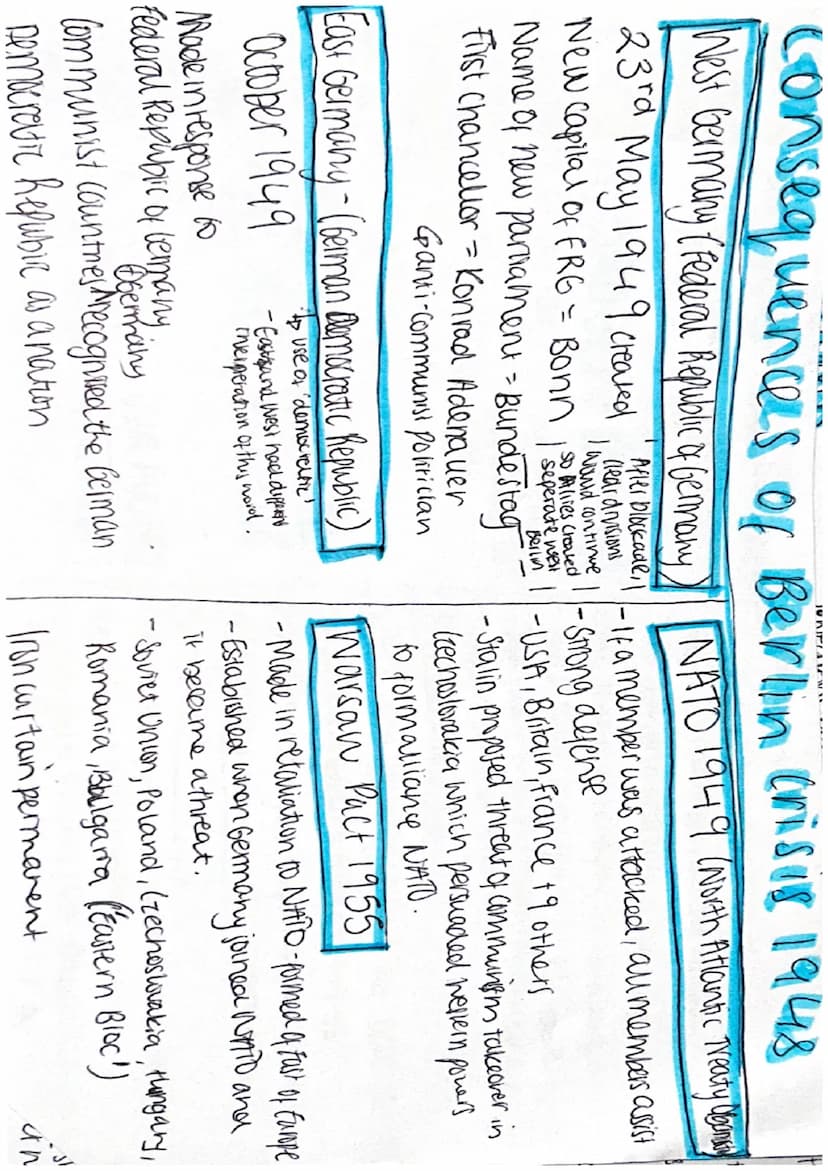 Consequences of Berlin Crisis 1948
West Germany (Federal Republic of Germany)
23rd May 1949 created
New capital of FRG = Bonn
Name of new parliament = Bundestag
First chancellor = Konrad Adenauer
anti-communist politician
After blockade,
clear divisions
would continue
so Allies created
seperate west
Berlin
East Germany - (German Democratic Republic)
October 1949
↳ use of 'democratic'
- East and West had different
interpretation of this word.
Made in response to
Federal Republic of Germany
Communist countries recognised the German
Democratic Republic as a nation
NATO 1949 (North Atlantic Treaty
- If a member was attacked, all members assist
- Strong defense
- USA, Britain, France + 9 others
- Stalin proposed threat of communism takeover in
Czechoslovakia which persuaded western powers
to form alliance NATO.
Warsaw Pact 1955
- Made in retaliation to NATO - formed of East of Europe
- Established when Germany joined NATO and
it became a threat.
- Soviet Union, Poland, Czechoslovakia, Hungary,
Romania, Bulgaria ('Eastern Bloc')
Iron curtain permanent